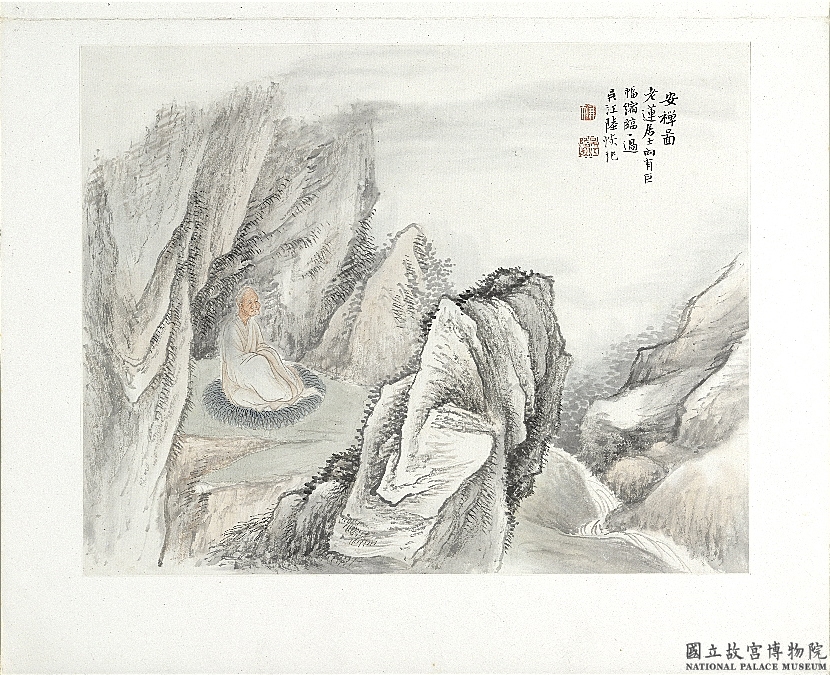 安禪圖
老蓮居士向有巨
幅縮臨一過
吳江陸恢記
國立故宮博物院
NATIONAL PALACE MUSEUM